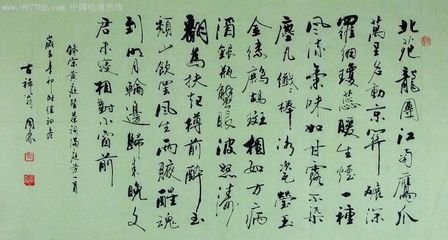 www.997788.com 中国收藏热线
北苑龍團江南鷹爪
萬里名動京關碾深
羅細瓊蕊暖生煙一種
風流氣味如甘露不染
塵凡纖纖捧冰瓷瑩玉
金縷鷓鴣斑相如方病
酒銀瓶蟹眼波怒濤
翻為扶起樽前醉玉
頹山飲罷風生兩腋醒魂
到明月輪邊歸來晚文
君未寢相對小窗前
錄宋黃庭堅茶詞滿庭芳一首
歲在辛卯時值初冬
吉祥翁